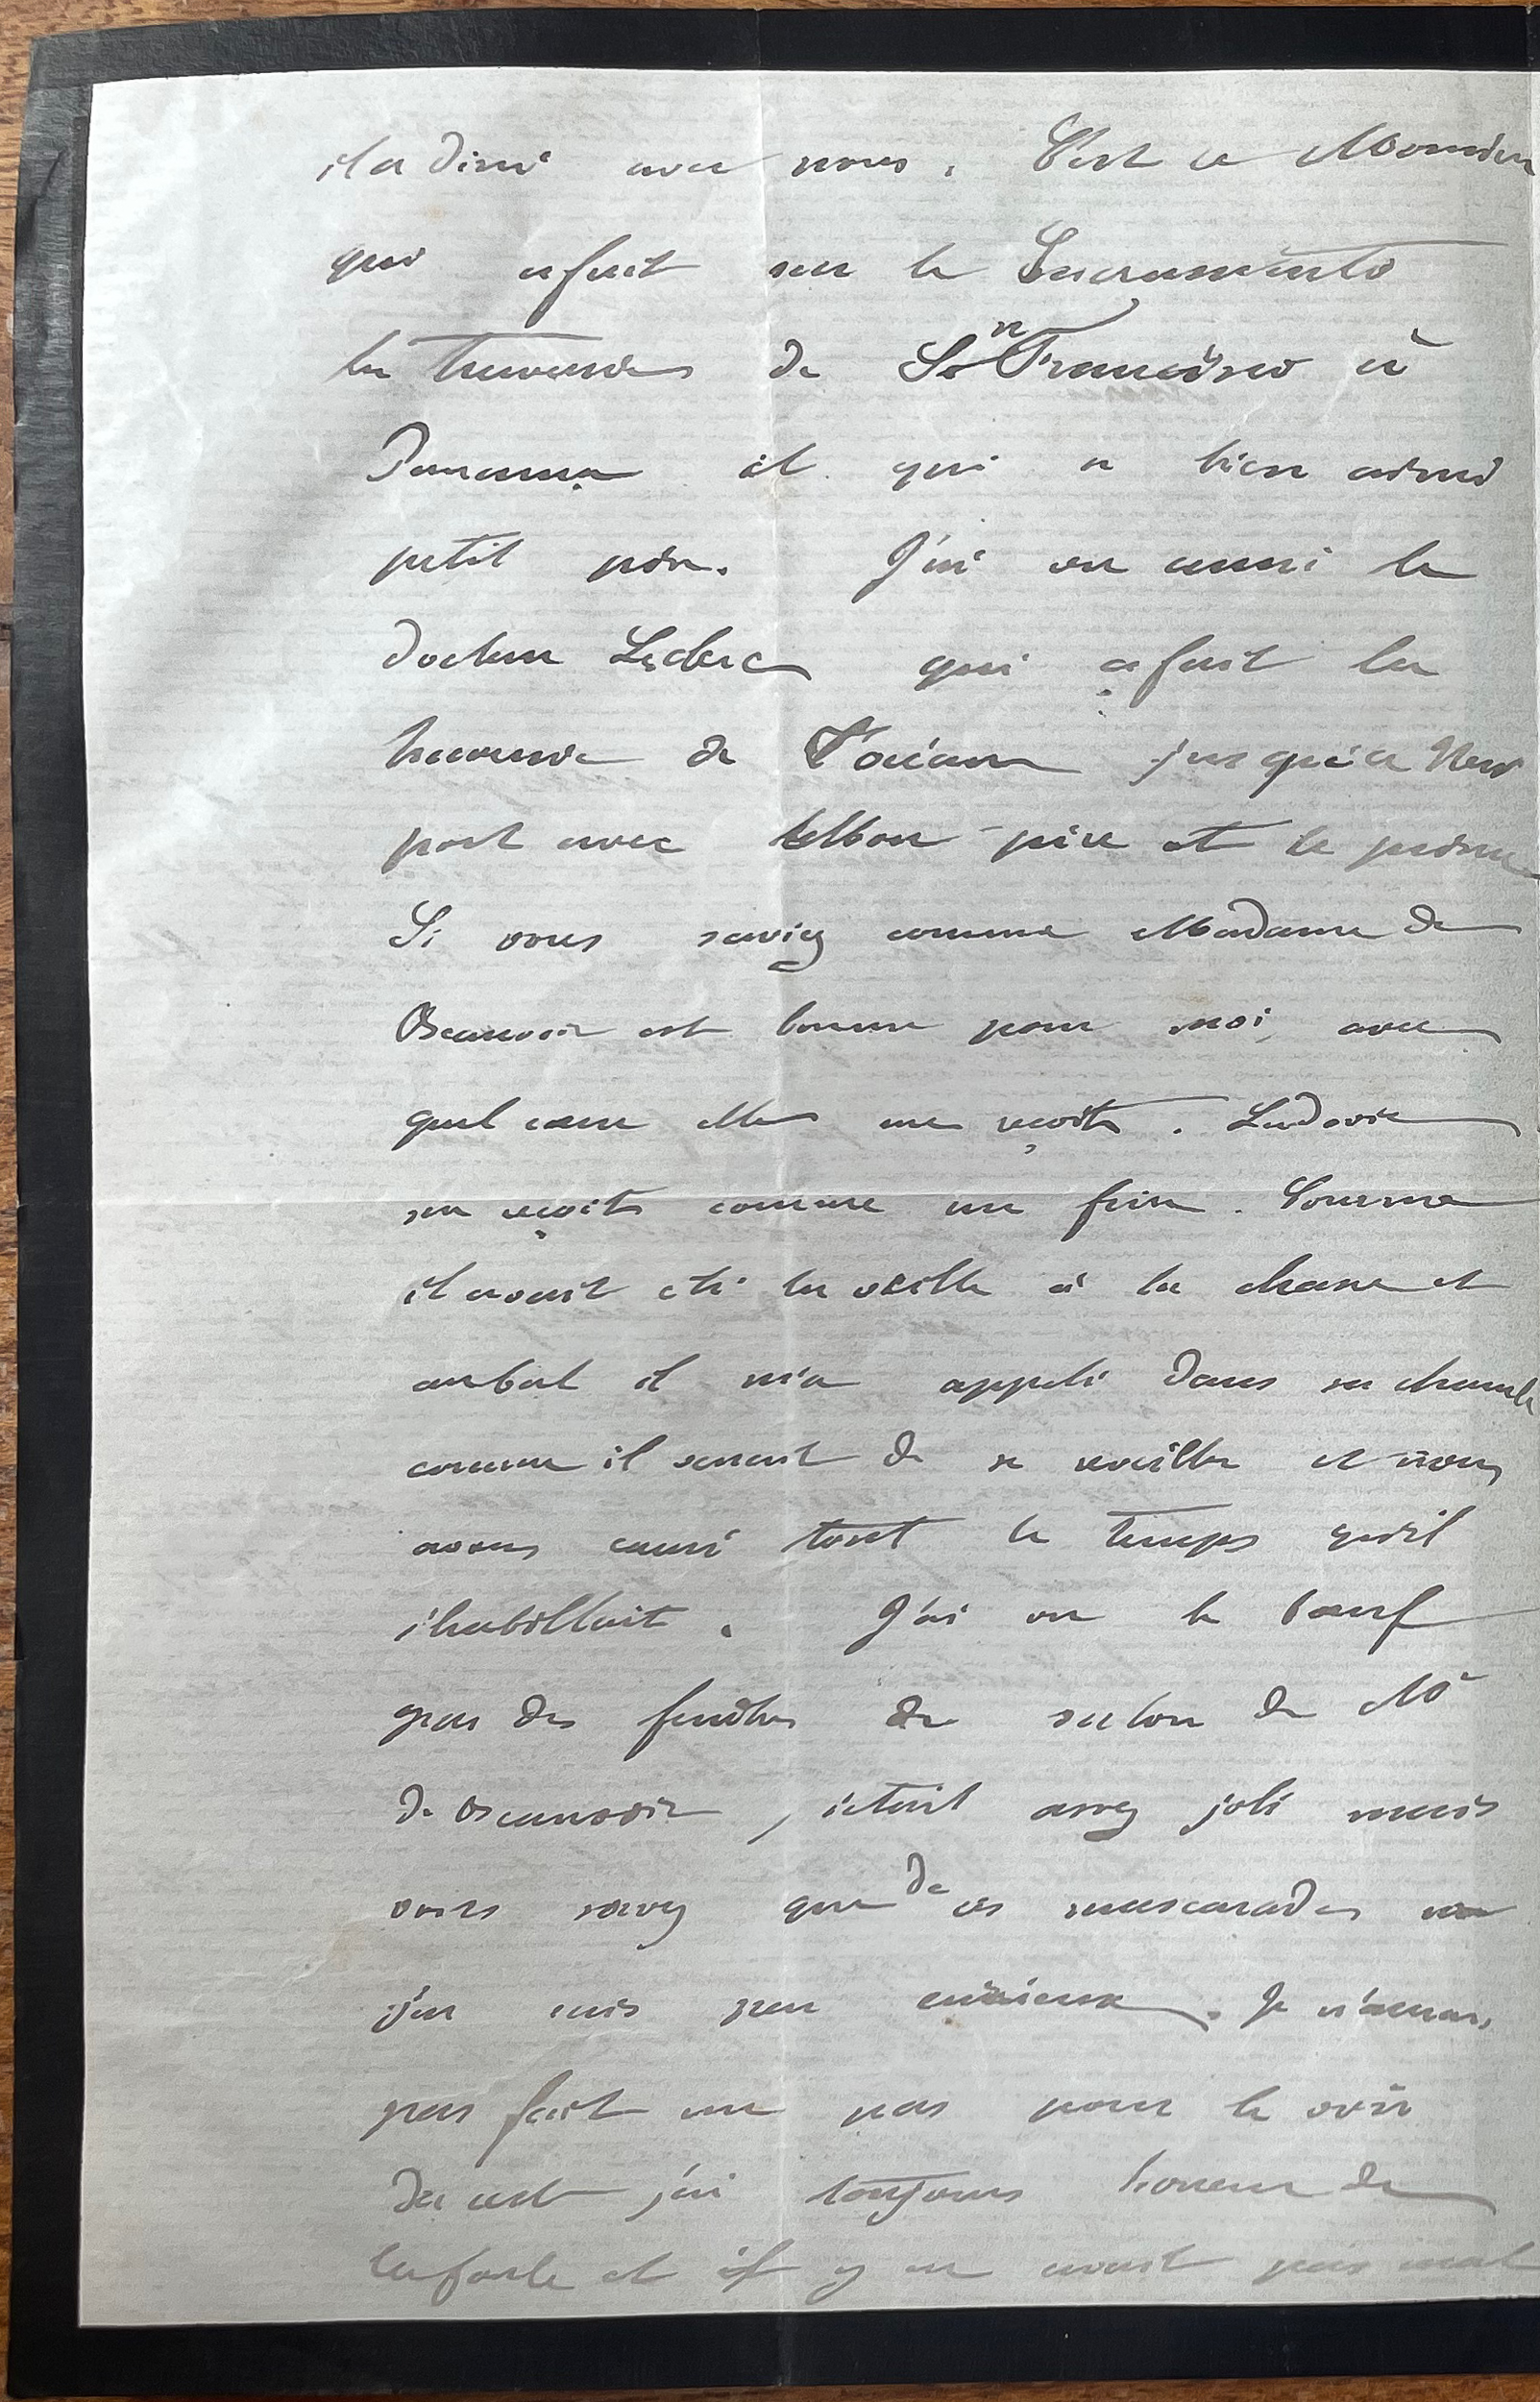 il a diné avec nous. C'est ce Monsieur
qui a fait sur le Sacramento
la traversée de Sn Francisco à
Panama et qui a bien aimé
petit père. J'ai vu aussi le
docteur Leclerc qui a fait la
traversée de l'océan jusqu'à New
port avec bon-père et le prince
Si vous saviez comme Madame de
Beauvoir est bonne pour moi, avec
quel cœur elle me reçoit. Ludovic
me reçoit comme un frère. Comme
il avait été la veille à la chasse et
au bal il m'a appelé dans sa chambre
comme il venait de se reveiller et nous
avons causé tout le temps qu'il
s'habillait. J'ai vu le bœuf
gras des fenêtres du salon de Me
de Beauvoir, c'était assez joli mais
vous savez que de ces mascarades
j'en suis peu curieux. Je n'aurais
pas fait un pas pour le voir
Du reste j'ai toujours horreur de
la foule et il y en avait pas mal